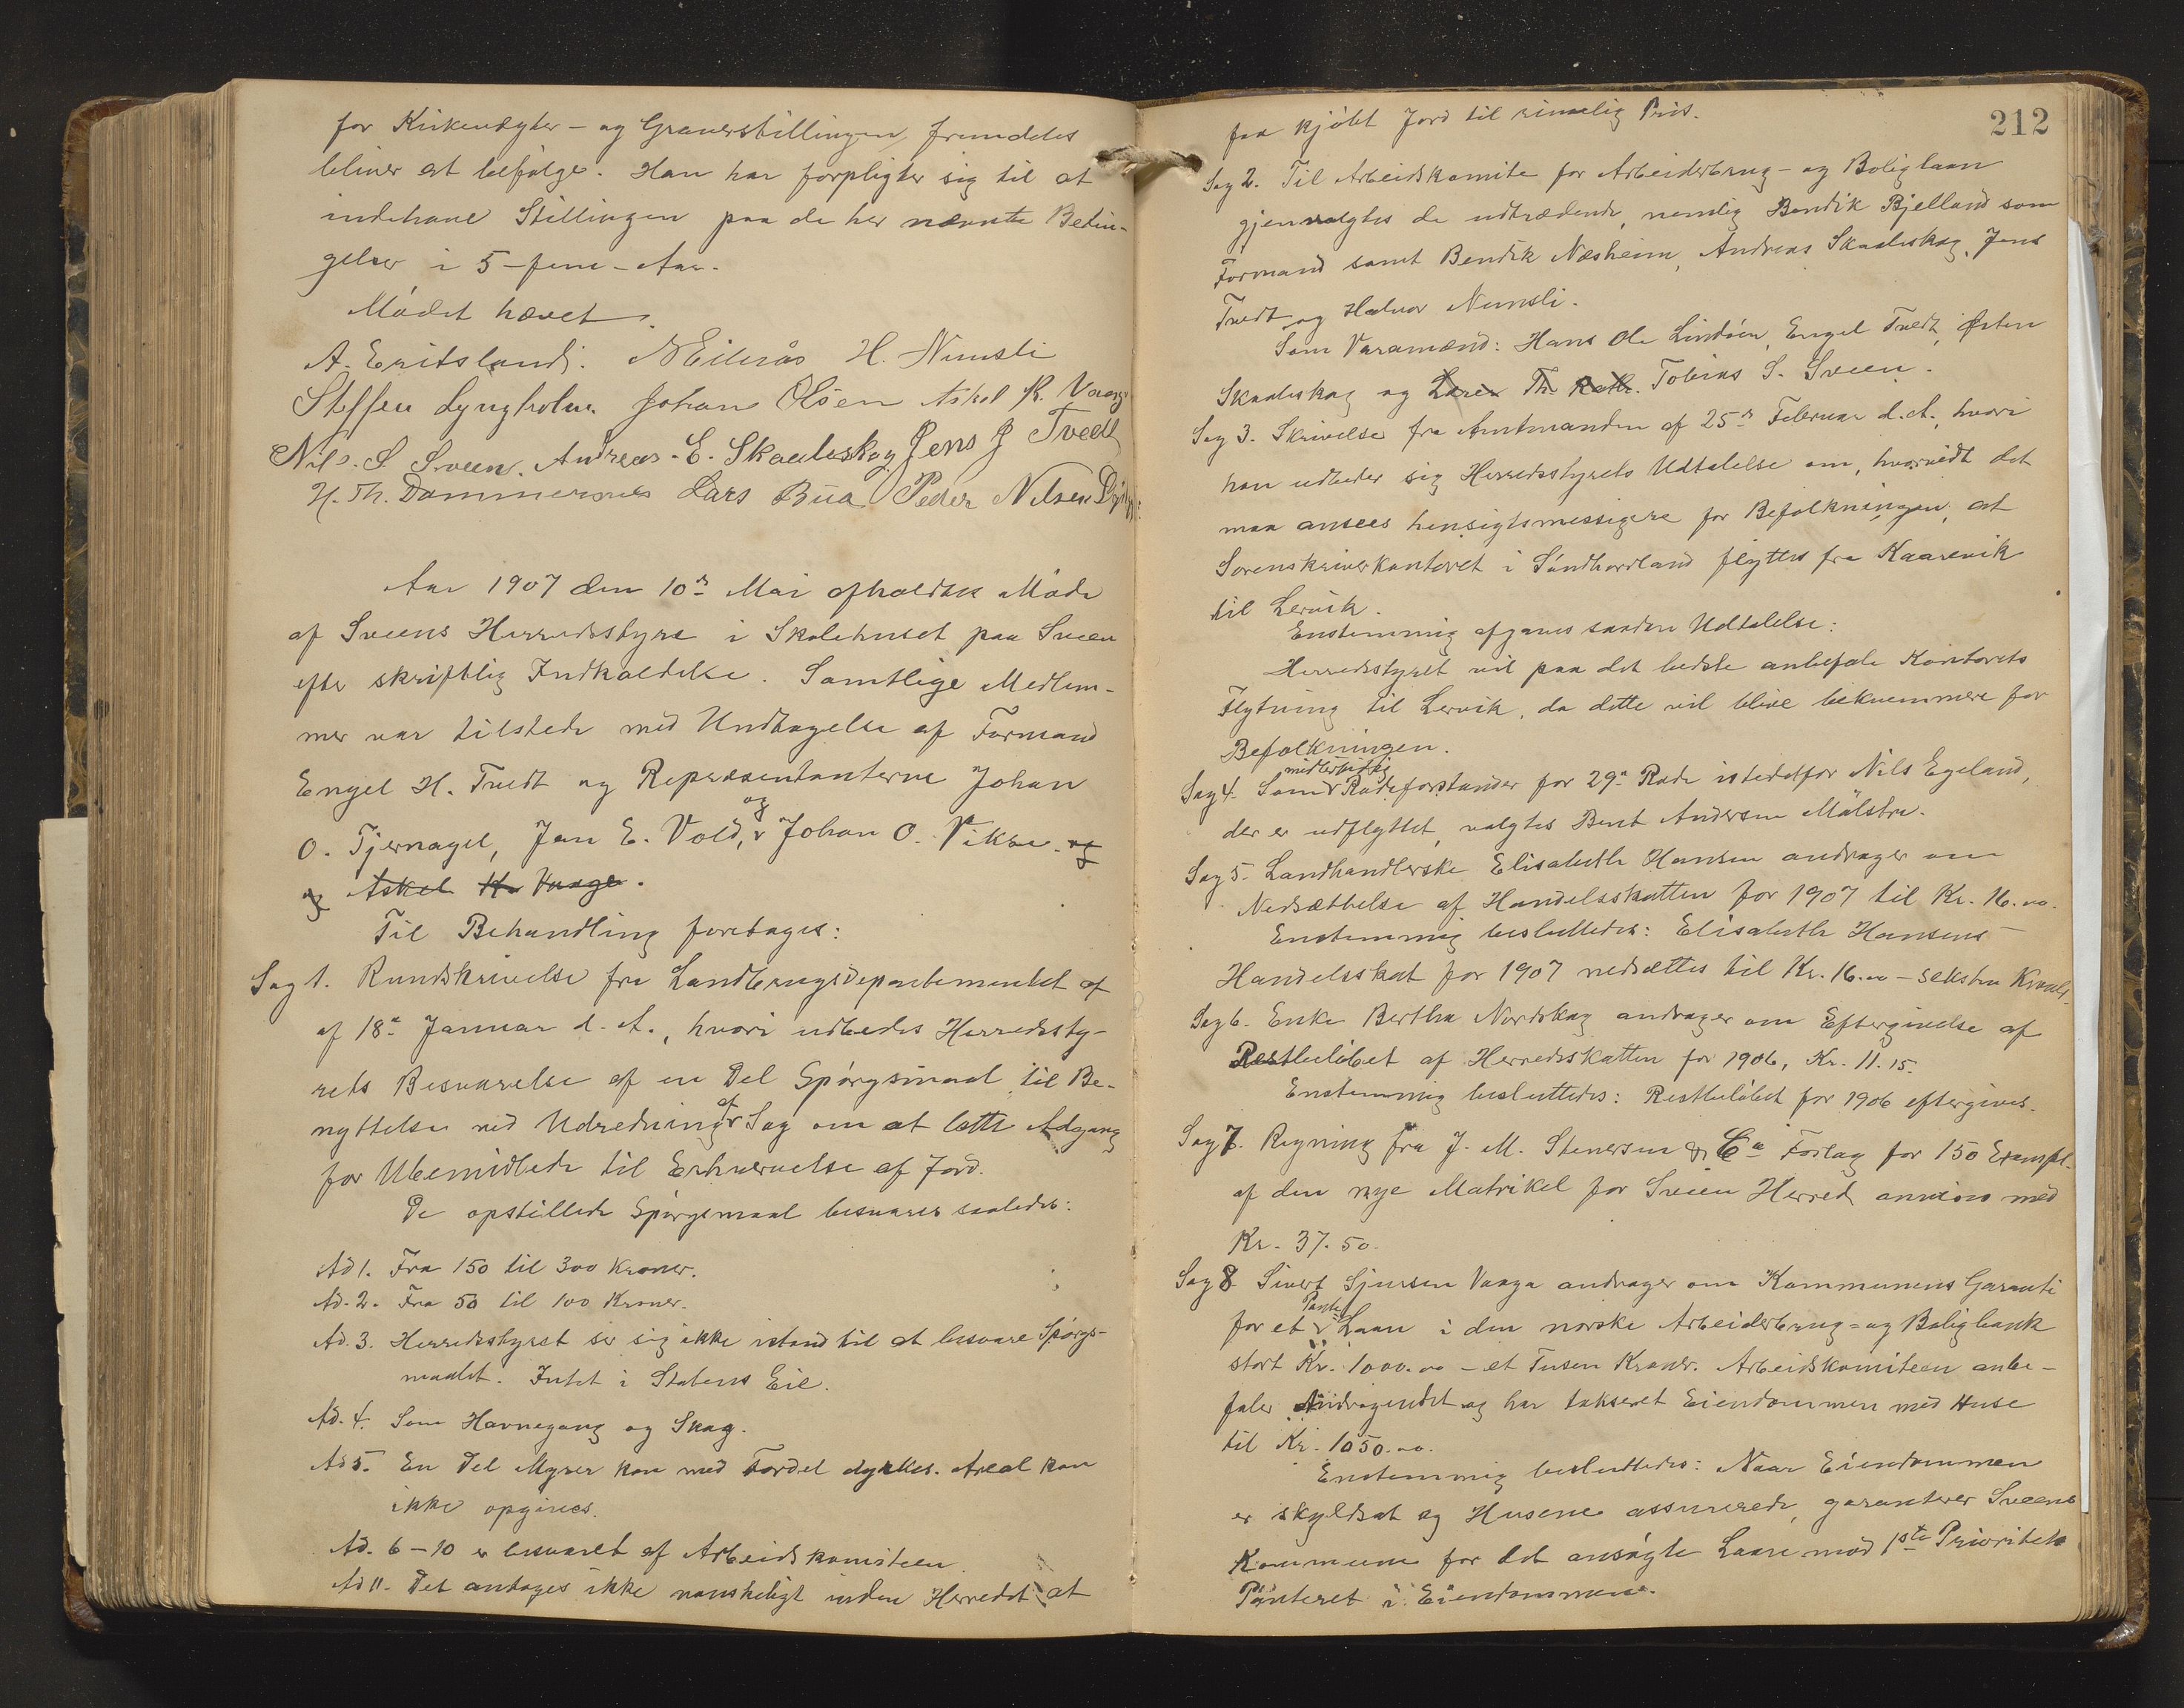 for Kirkevægter- og Graverstillingen, fremdeles
bliver at befølge. Han har forpligtet sig til at
indehave Stillingen paa de her nævnte Betin-
gelser i 5-fem-Aar.
Mødet hævet.
A. Eritsland. N Eilerås H. Numsli
Steffen Lyngholm. Johan Olsen Askel K. Vaage
Nils. S. Sveen. Andreas. E. Skaaleskog Jens J Tvedt
H. Th. Dommersnes Lars Bua Peder Nilsen
Aar 1907 den 10de Mai afholdtes Møde
af Sveens Herredsstyre i Skolehuset paa Sveen
efter skriftlig Indkaldelse. Samtlige Medlem-
mer var tilstede med Undtagelse af Formand
Engel H. Tvedt og Repræsentanterne Johan
O. Tjernagel, Jan E. Vold, og Johan O. Vikse. og
og Askel K. Vaage.
Til Behandling foretages:
Sag 1. Rundskrivelse fra Landbrugsdepartementet af
af 18de Januar d. A., hvori udbedes Herredssty-
rets Besvarelse af en Del Spørgsmaal til Be-
nyttelse ved Udredning af Sag om at lette Adgang
for Ubemidlede til Erhvervelse af Jord.
De opstillede Spørgsmaal besvares saaledes:
Ad 1. Fra 150 til 300 Kroner.
Ad. 2. Fra 50 til 100 Kroner.
Ad. 3. Herredsstyret ser sig ikke istand til at besvare Spørgs-
maalet. Intet i Statens Eie.
Ad. 4. Som Havnegang og Skog.
Ad 5. En Del Myrer kan med Fordel dyrkes. Areal kan
ikke opgives.
Ad. 6-10 er besvaret af Arbeidskomiteen.
Ad 11. Det antages ikke vanskeligt inden Herredet at
212
faa kjøbt Jord til rimelig Pris.
Sag 2. Til Arbeidskomite for Arbeiderbrug- og Boliglaan
gjenvalgtes de udtrædende, nemlig Bendik Bjelland som
Formand samt Bendik Næsheim, Andreas Skaaleskog, Jens
Tvedt og Halvor Numsli.
Som Varamænd: Hans Ole Lindøen, Engel Tvedt, Østen
Skaaleskog og Tobias S. Sveen.
Sag 3. Skrivelse fra Amtmanden af 25de Februar d. A., hvori
han udbeder sig Herredsstyrets Udtalelse om, hvorvidt det
maa ansees hensigtsmessigere for Befolkningen, at
Sorenskriverkontoret i Søndhordland flyttes fra Kaarevik
til Lervik.
Enstemmig afgaves saadan Udtalelse:
Herredsstyret vil paa det bedste anbefale Kontorets
Flytning til Lervik, da dette vil blive bekvemmere for
Befolkningen.
Sag 4. Som midlertidig Rodeforstander for 29de Rode istedetfor Nils Egeland,
der er udflyttet, valgtes Bent Andersen Mølstre.
Sag 5. Landhandlerske Elisabeth Hansen andrager om
Nedsættelse af Handelsskatten for 1907 til Kr. 16.00.
Enstemmig besluttedes: Elisabeth Hansens
Handelsskat for 1907 nedsættes til Kr. 16.00 - seksten Kroner.
Sag 6. Enke Bertha Nordskog andrager om Eftergivelse af
Restbeløbet af Herredsskatten for 1906, Kr. 11.15.
Enstemmig besluttedes: Restbeløbet for 1906 eftergives.
Sag 7. Regning fra J. M. Stenersen & Co Forlag for 150 Exempl.
af den nye Matrikel for Sveen Herred anvises med
Kr. 37.50.
Sag 8. Sivert Sjursen Vaage andrager om Kommunens Garanti
for et Pante Laan i den norske Arbeiderbrug- og Boligbank
stort Kr. 1000.00 - et Tusen Kroner. Arbeidskomiteen anbe-
faler Andragendet og har takseret Eiendommen med Huse
til Kr. 1050.00.
Enstemmig besluttedes: Naar Eiendommen
er skyldsat og Husene assurerede, garanterer Sveens
Kommune for det ansøgte Laan mod 1ste Prioritets
Panteret i Eiendommen.